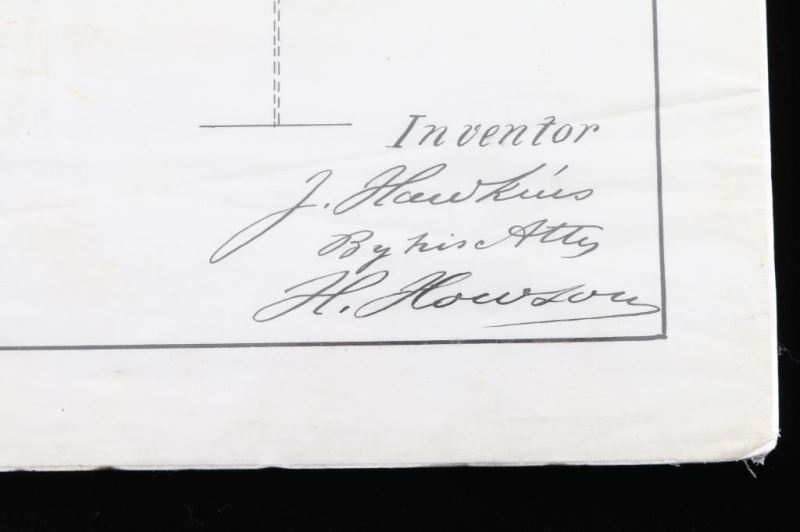 Inventor
J. Hawkins
By his Atty
H. Howson